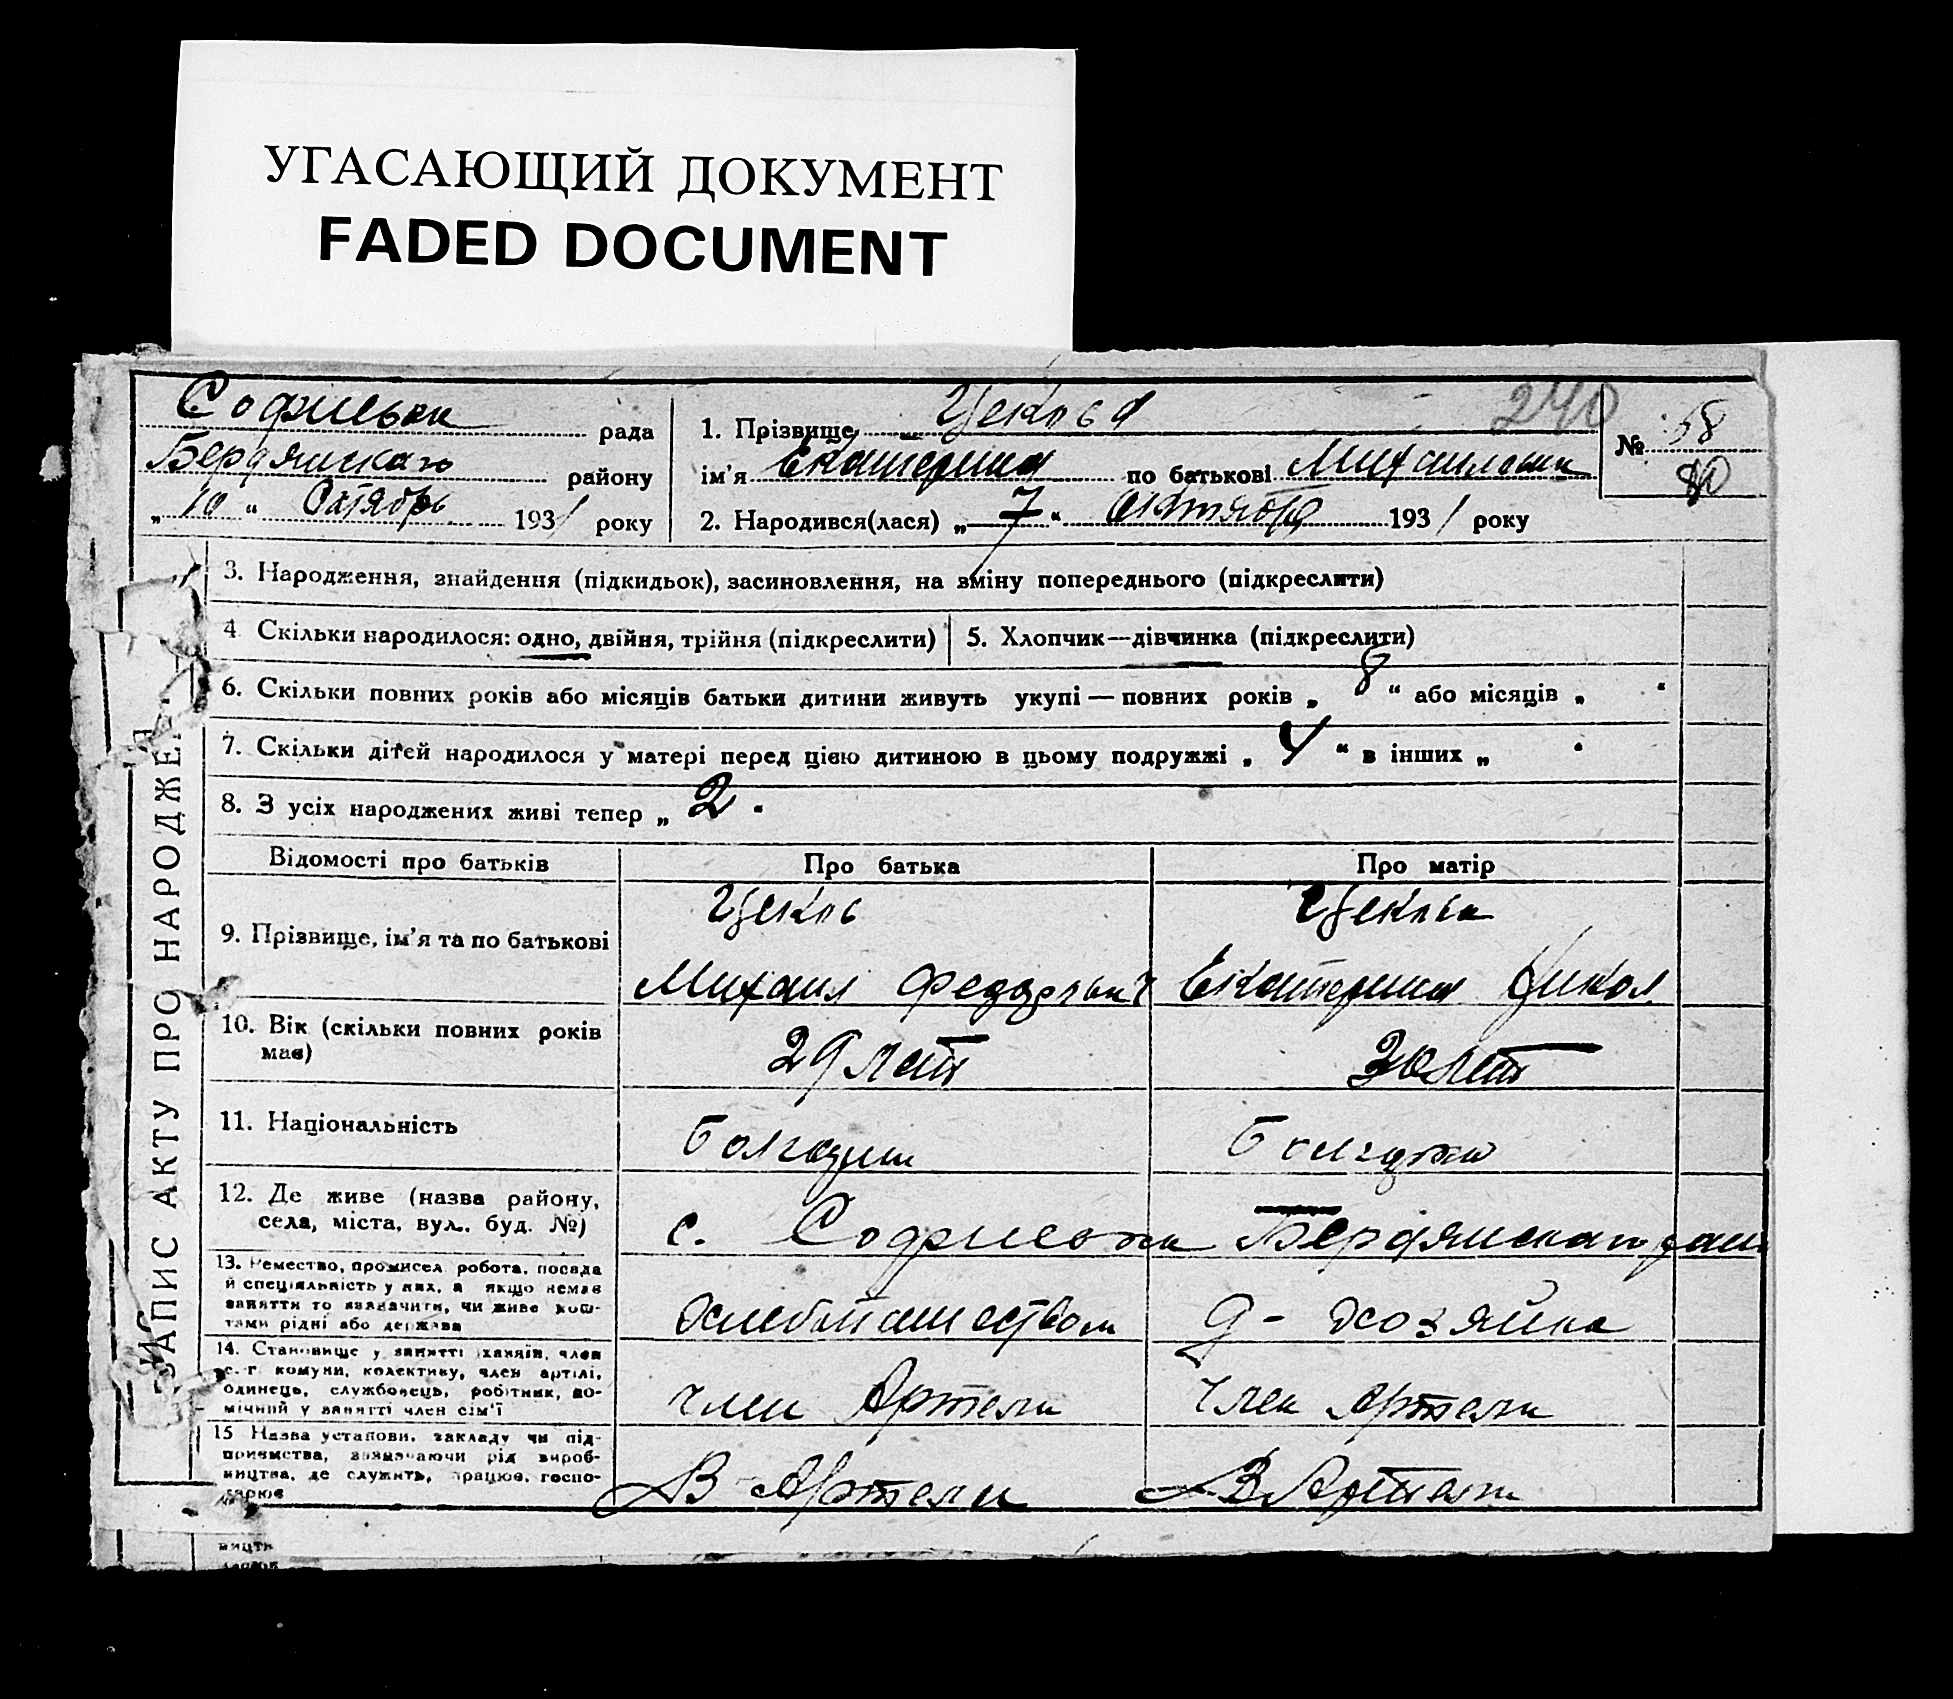 УГАСАЮЩИЙ ДОКУМЕНТ
FADED DOCUMENT
Софиевка рада
Бердянскаго району
„ 10 “ Октябрь 1931 року
1. Прізвище Цекова
240
ім'я Екатерина по батькові Михаиловна
2. Народився(лася) „ 7 “ Октября 1931 року
№ 58
80
ЗАПИС АКТУ ПРО НАРОДЖЕ
3. Народження, знайдення (підкидьок), засиновлення, на зміну попереднього (підкреслити)
4. Скільки народилося: одно, двійня, трійня (підкреслити)
5. Хлопчик—дівчинка (підкреслити)
6. Скільки повних років або місяців батьки дитини живуть укупі — повних років „ 8 “ або місяців „ “
7. Скільки дітей народилося у матері перед цією дитиною в цьому подружжі „ 4 “ в інших „ “
8. З усіх народжених живі тепер „ 2 “
Відомості про батьків
Про батька
Про матір
9. Прізвище, ім'я та по батькові
Цеков
Михаил Федорович
Цекова
Екатерина Никол
10. Вік (скільки повних років
має)
29 лет
30 лет
11. Національність
болгарин
болгарка
12. Де живе (назва району,
села, міста, вул., буд. №)
с. Софиевка Бердянскаго
13. Ремество, промисел, робота, посада
й спеціяльність у них, а якщо немає
заняття то зазначити, чи живе кош-
тами рідні або держава
хлебопашеством
д - хозяйка
14. Становище у занятті хазяїн, член
с.-г. комуни, колективу, член артілі,
одинець, службовець, робітник, по-
мічний у занятті член сім'ї
член Артели
член Артели
15 Назва установи, закладу чи під-
приємства, зазначаючи рід вироб-
ництва, де служить, працює, госпо-
дарює
В Артели
В Артели